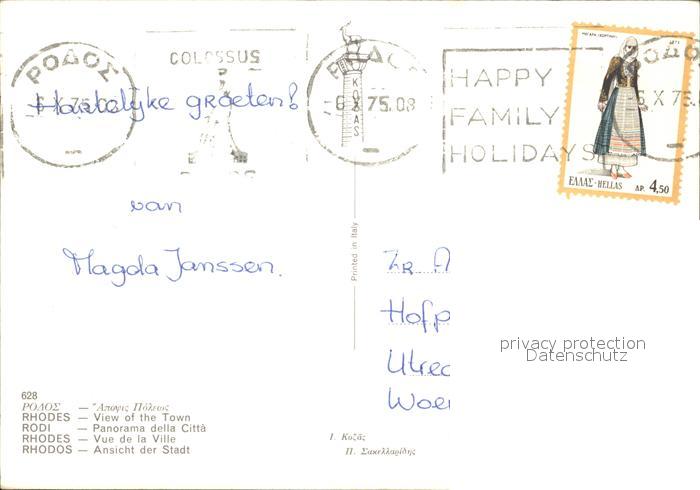 ΡΟΔΟΣ
COLOSSUS
ΡΟΔΟΣ
HAPPY
FAMILY
HOLIDAYS
-6 X 75.08
6 X 75
ΕΛΛΑΣ-HELLAS ΔΡ. 4,50
Hartelijke groeten!
van
Magda Janssen.
Printed in Italy
Zr A
Hofp
Utrec
Woer
privacy protection
Datenschutz
628
ΡΟΔΟΣ — Ἄποψις Πόλεως
RHODES — View of the Town
RODI — Panorama della Città
RHODES — Vue de la Ville
RHODOS — Ansicht der Stadt
Ι. Κοζᾶς
Π. Σακελλαρίδης